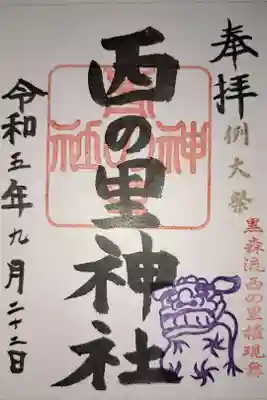 奉拝
例大祭
黒森流西の里権現舞
西の里神社
令和五年九月二十二日